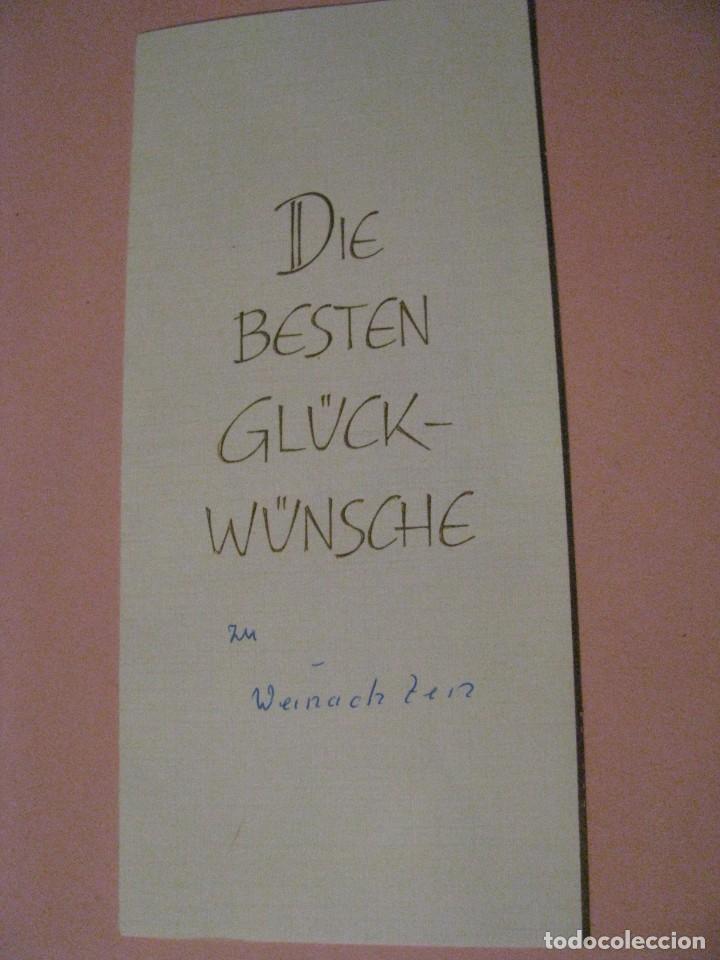 DIE
BESTEN
GLÜCK-
WÜNSCHE
zu
Weinach
todocoleccion